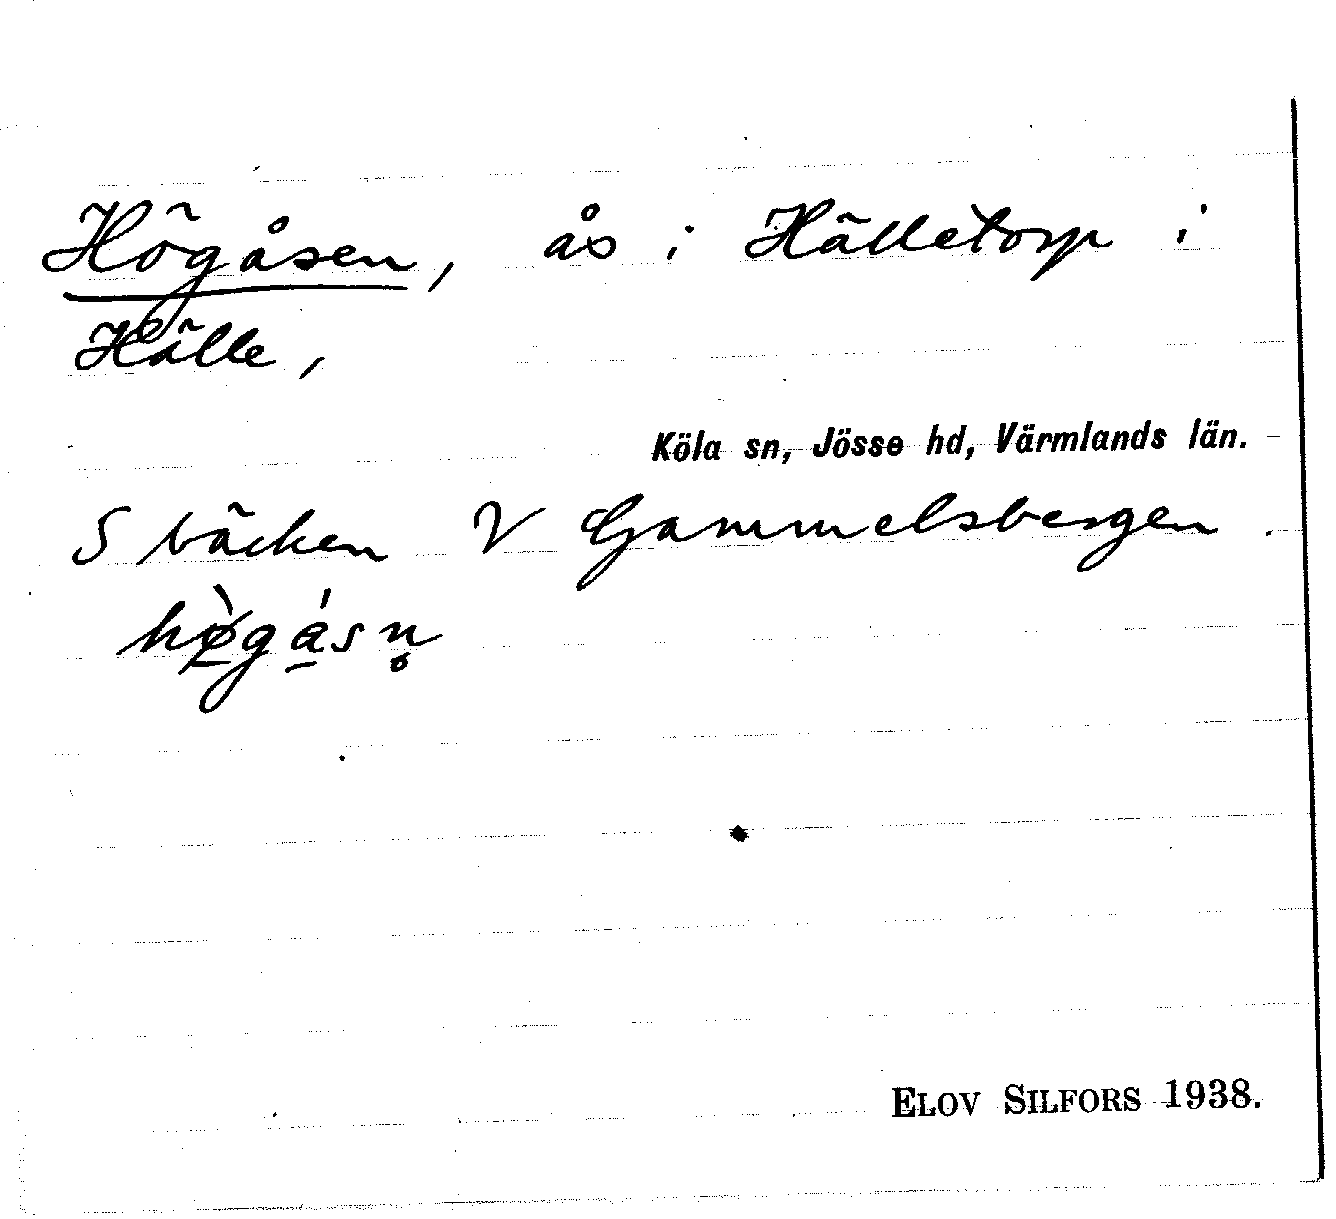 Högåsen, ås i Hälletorp i
Hälle,
Köla sn, Jösse hd, Värmlands län.
S bäcken V Gammelsbergen.
hø̱̀gá̱sn̥
ELOV SILFORS 1938.